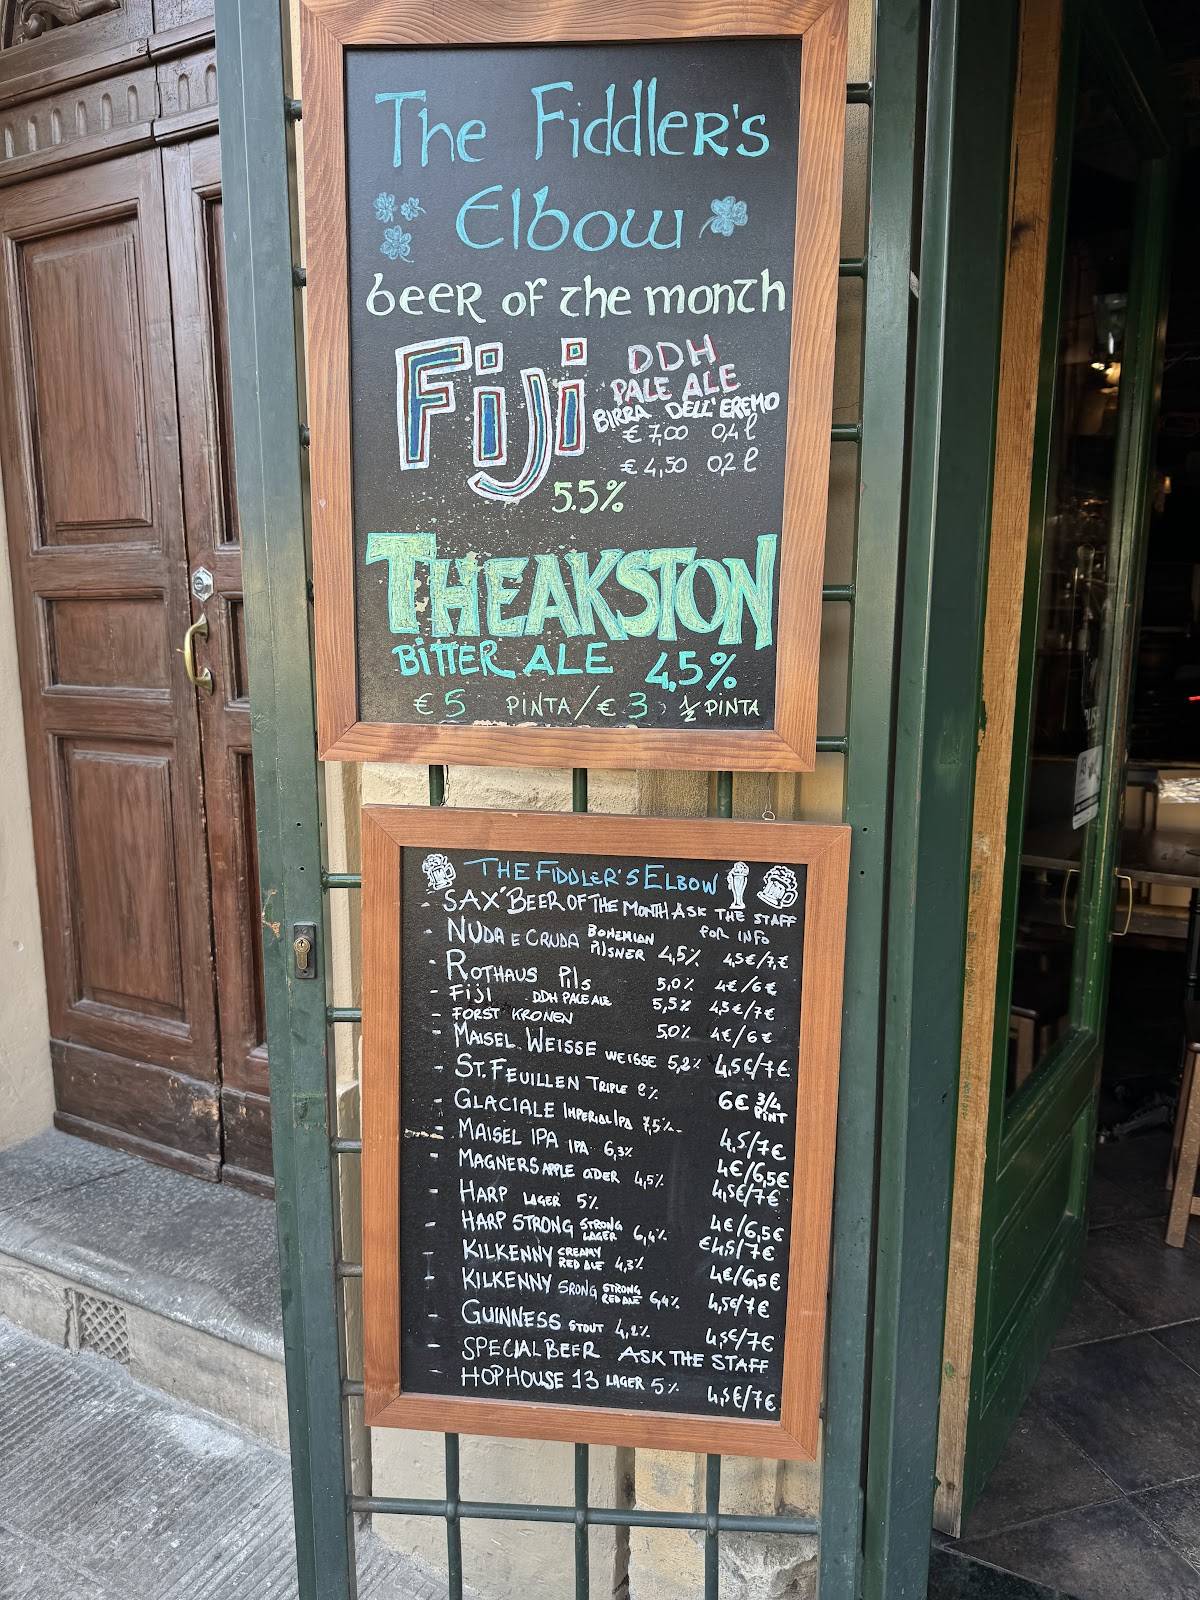 The Fiddler's
Elbow
beer of the month
Fiji
DDH
PALE ALE
BIRRA DELL'EREMO
€ 7,00 0,4 l
€ 4,50 0,2 l
5.5%
THEAKSTON
BITTER ALE 4,5%
€ 5 PINTA / € 3 ½ PINTA
THE FIDDLER'S ELBOW
- SAX "BEER OF THE MONTH ASK THE STAFF FOR INFO
- NUDA E CRUDA BOHEMIAN PILSNER 4,5% 4,5€/7,€
- ROTHAUS PILS 5,0% 4€/6€
- FIJI DDH PALE ALE 5,5% 4,5€/7€
- FORST KRONEN 5,0% 4€/6€
- MAISEL WEISSE WEISSE 5,2% 4,5€/7€
- ST. FEUILLEN TRIPLE 8% 6€ 3/4 PINT
- GLACIALE IMPERIAL IPA 7,5% 4,5/7€
- MAISEL IPA IPA 6,3% 4€/6,5€
- MAGNERS APPLE CIDER 4,5% 4,5€/7€
- HARP LAGER 5% 4€/6,5€
- HARP STRONG STRONG LAGER 6,4% €4,5/7€
- KILKENNY CREAMY RED ALE 4,3% 4€/6,5€
- KILKENNY SRONG STRONG RED ALE 6,4% 4,5€/7€
- GUINNESS STOUT 4,2% 4,5€/7€
- SPECIAL BEER ASK THE STAFF
- HOPHOUSE 13 LAGER 5% 4,5€/7€